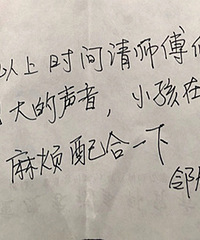 以上时间请师傅
大的声音，小孩在
麻烦配合一下
邻